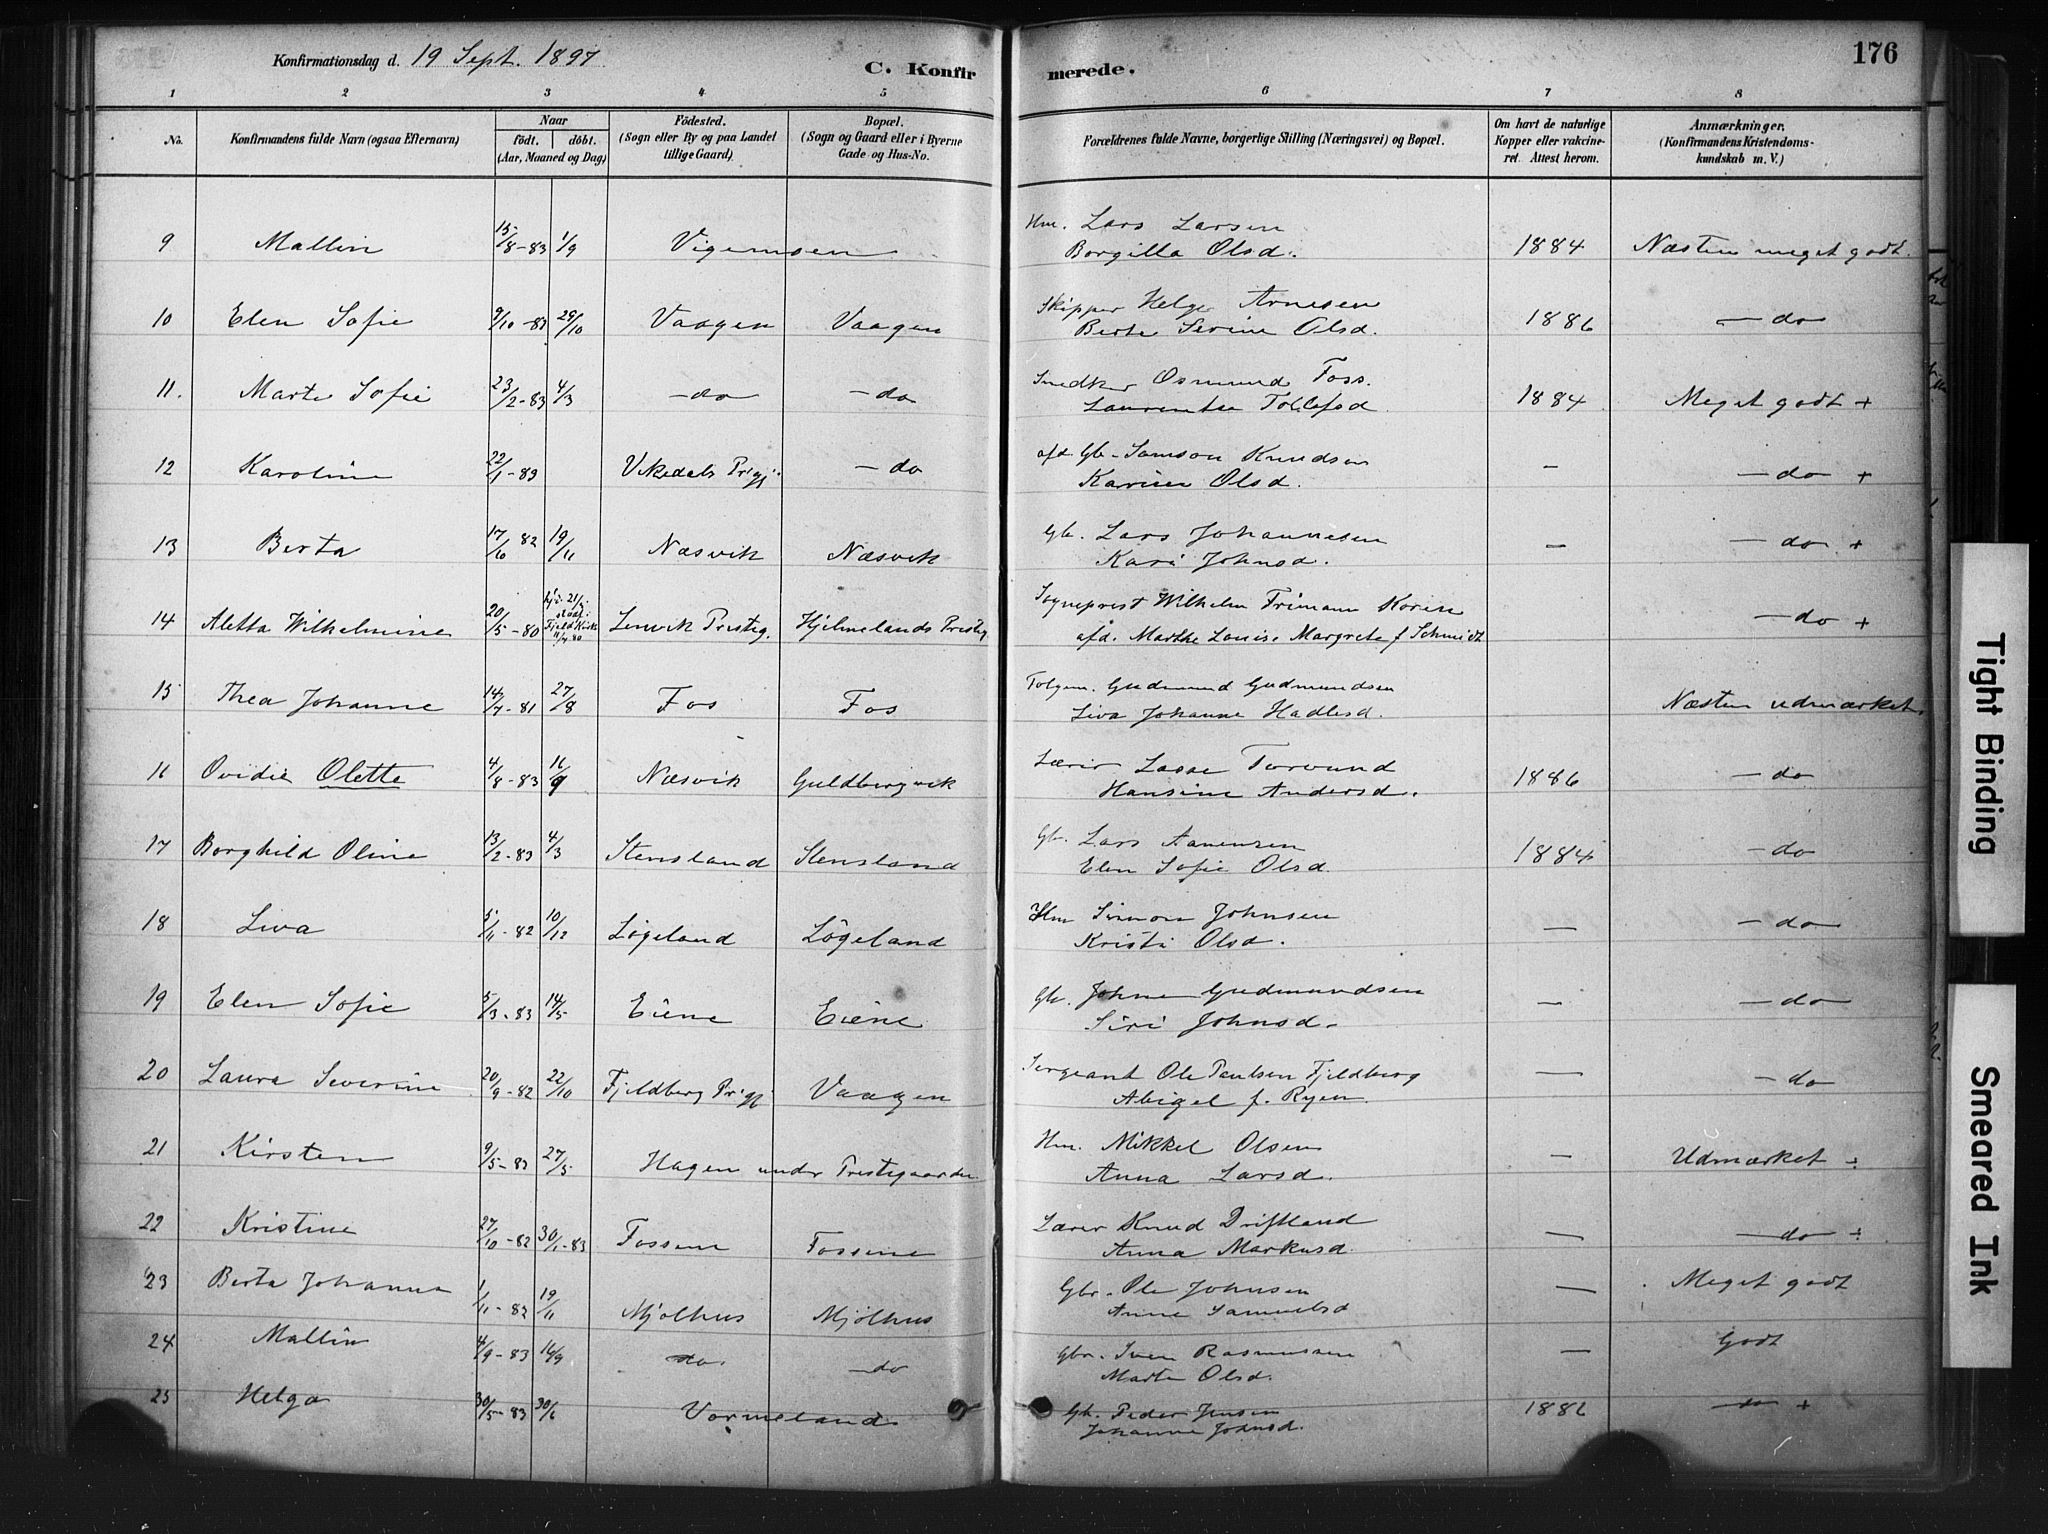 Konfirmationsdag d. 19 Sept. 1897
C. Konfirmerede.
176
1 2 3 4 5 6 7 8
No. Konfirmandens fulde Navn (ogsaa Efternavn) Naar født. døbt. (Aar, Maaned og Dag) Fødested. (Sogn eller By og paa Landet tillige Gaard) Bopæl. (Sogn og Gaard eller i Byerne Gade og Hus-No. Forældrenes fulde Navne, borgerlige Stilling (Næringsvei) og Bopæl. Om havt de naturlige Kopper eller vakcineret. Attest herom. Anmærkninger. (Konfirmandens Kristendomskundskab m. V.)
9 Mallin 15/8-83 1/9 Vigemoen Hm. Lars Larsen
Borgilla Olsd. 1884 Næsten meget godt.
10 Elen Sofie 9/10-83 29/10 Vaagen Vaagen Skipper Helge Arnesen
Berte Serine Olsd. 1886 - do
11. Marte Sofie 23/2-83 4/3 - do - do Snedker Osmund Foss.
Laurentse Tollefsd. 1884 Meget godt +
12 Karoline 22/1-83 Vikedals Prgj. - do afd. Gb. Samson Knudsen
Karine Olsd. - - do +
13 Berta 17/10 82 19/11 Næsvik Næsvik Gb. Lars Johannesen
Kari Johnsd. - - do +
14 Aletta Wilhelmine 20/5-80 Lenvik Prestg. Hjelmelands Prestg. Sogneprest Wilhelm Frimann Koren
afd. Marthe Louise Margrete f. Schmidt - do +
15 Thea Johanne 14/7-81 27/8 Fos Fos Gudmund Gudmundsen
Liva Johanne Hadlesd. Næsten udmærket.
16 Ovidie Olette 4/8-83 16/9 Næsvik Guldbergvik Lærer Lasse Torvund
Hansine Andersd. 1886 - do
17 Borghild Oline 13/2-83 4/3 Stensland Stensland Gb. Lars Aanensen
Elen Sofie Olsd. 1884 - do
18 Liva 5/11-82 10/12 Løgeland Løgeland Hm Simon Johnsen
Kristi Olsd. - - do
19 Elen Sofie 5/3-83 14/5 Eiene Eiene Gb. Johne Gudmundsen
Siri Johnsd. - - do
20 Laura Severine 20/9-82 22/10 Fjeldberg Prgj Vaagen Sergeant Ole Paulsen Fjeldberg
Abigel f. Ryen. - - do
21 Kirsten 9/5-83 27/5 Hagen under Prestegaarden Hm. Mikkel Olsen
Anna Larsd. - Udmærket ÷
22 Kristine 27/10-82 30/1-83 Fossene Fossene Lærer Knud Driftland
Anna Markusd. - - do ÷
23 Berta Johanna 1/11-82 19/11 Mjølhus Mjølhus Gbr. Ole Johnsen
Anne Samuelsd - Meget godt
24 Mallin 4/9-83 16/9 do - do Gbr. Sven Rasmussen
Marta Olsd. - Godt
25 Helga 30/5-83 30/6 Vormeland Gb. Peder Jensen
Johanne Johnsd. 1886 - do +
Tight Binding
Smeared Ink